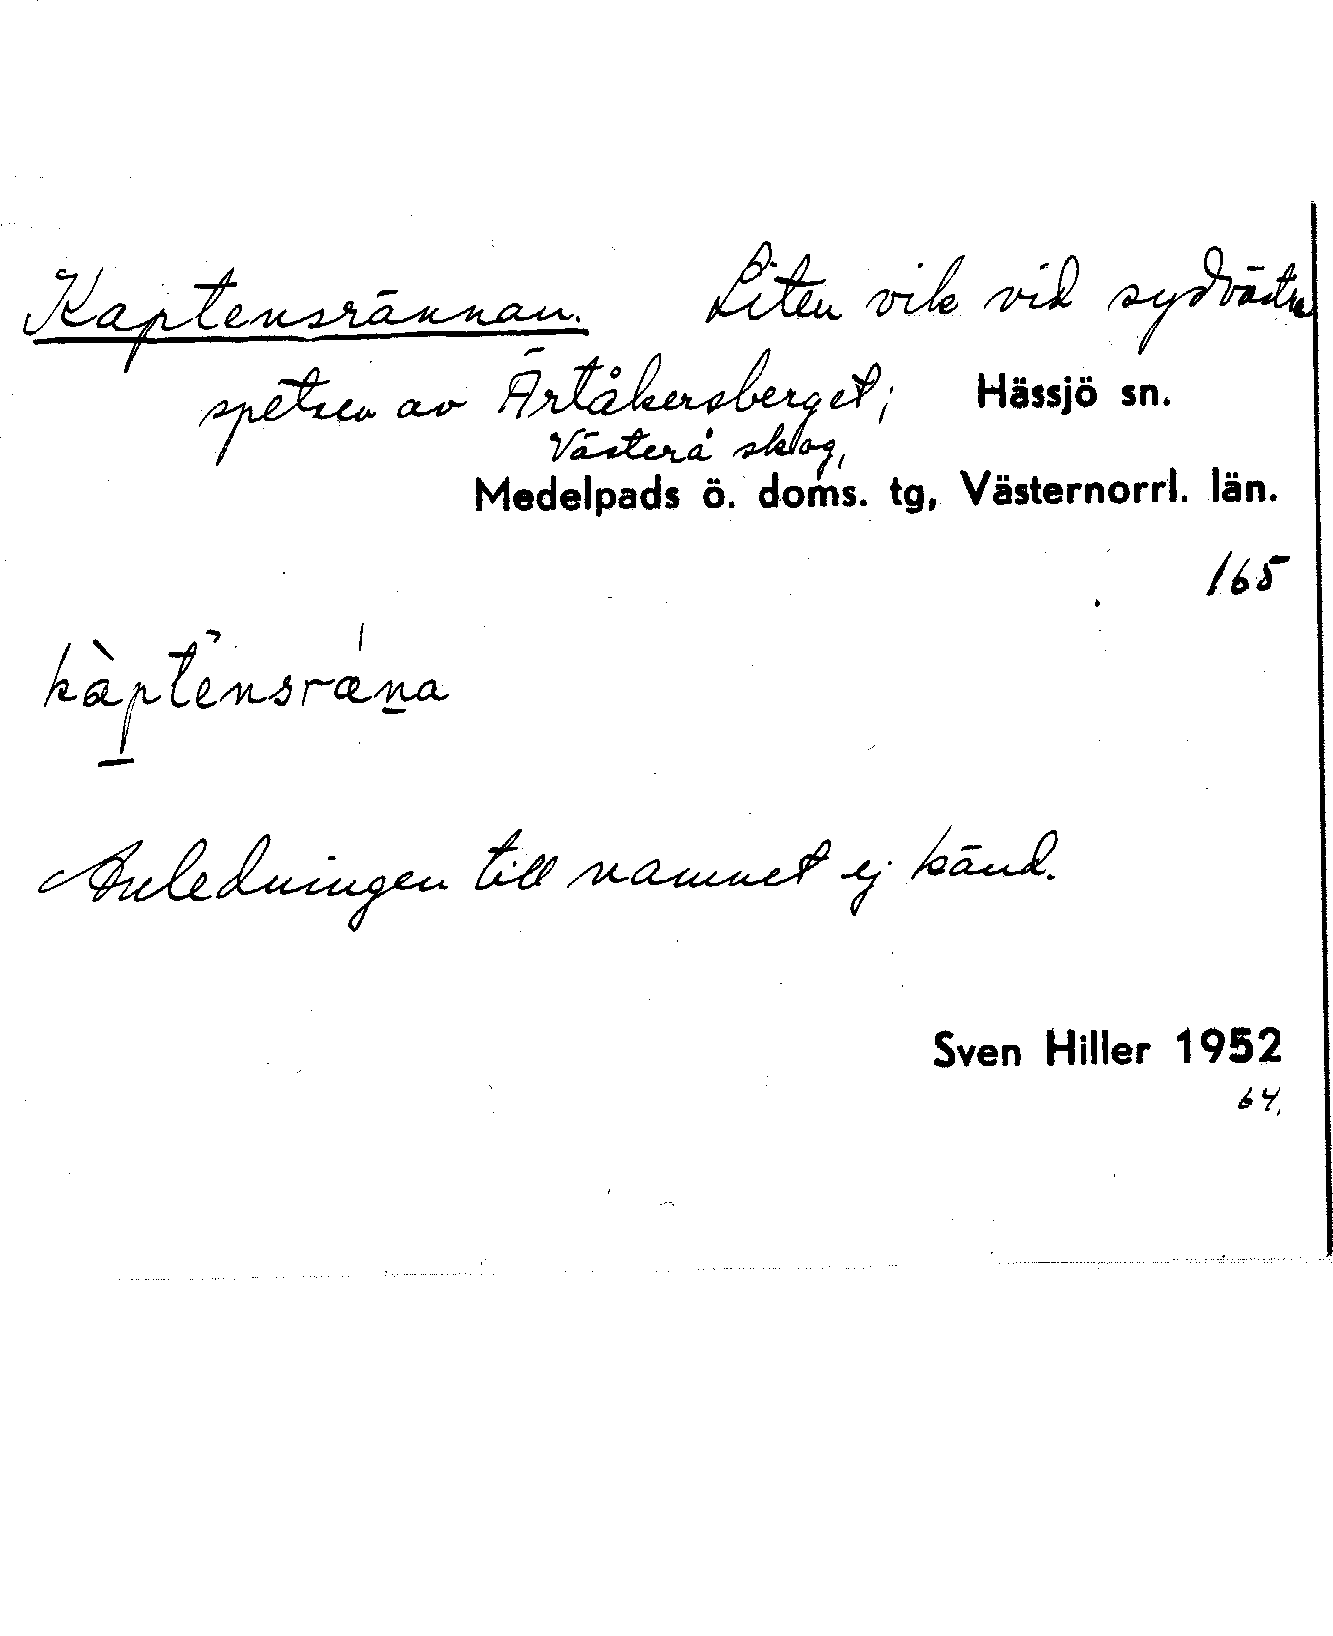 Kaptensrännan. Liten vik vid sydvästra
spetsen av Ärtåkersberget; Hässjö sn.
Västerå skog,
Medelpads ö. doms. tg, Västernorrl. län.
165
kàptensræ̍na
Anledningen till namnet ej känd.
Sven Hiller 1952
64.